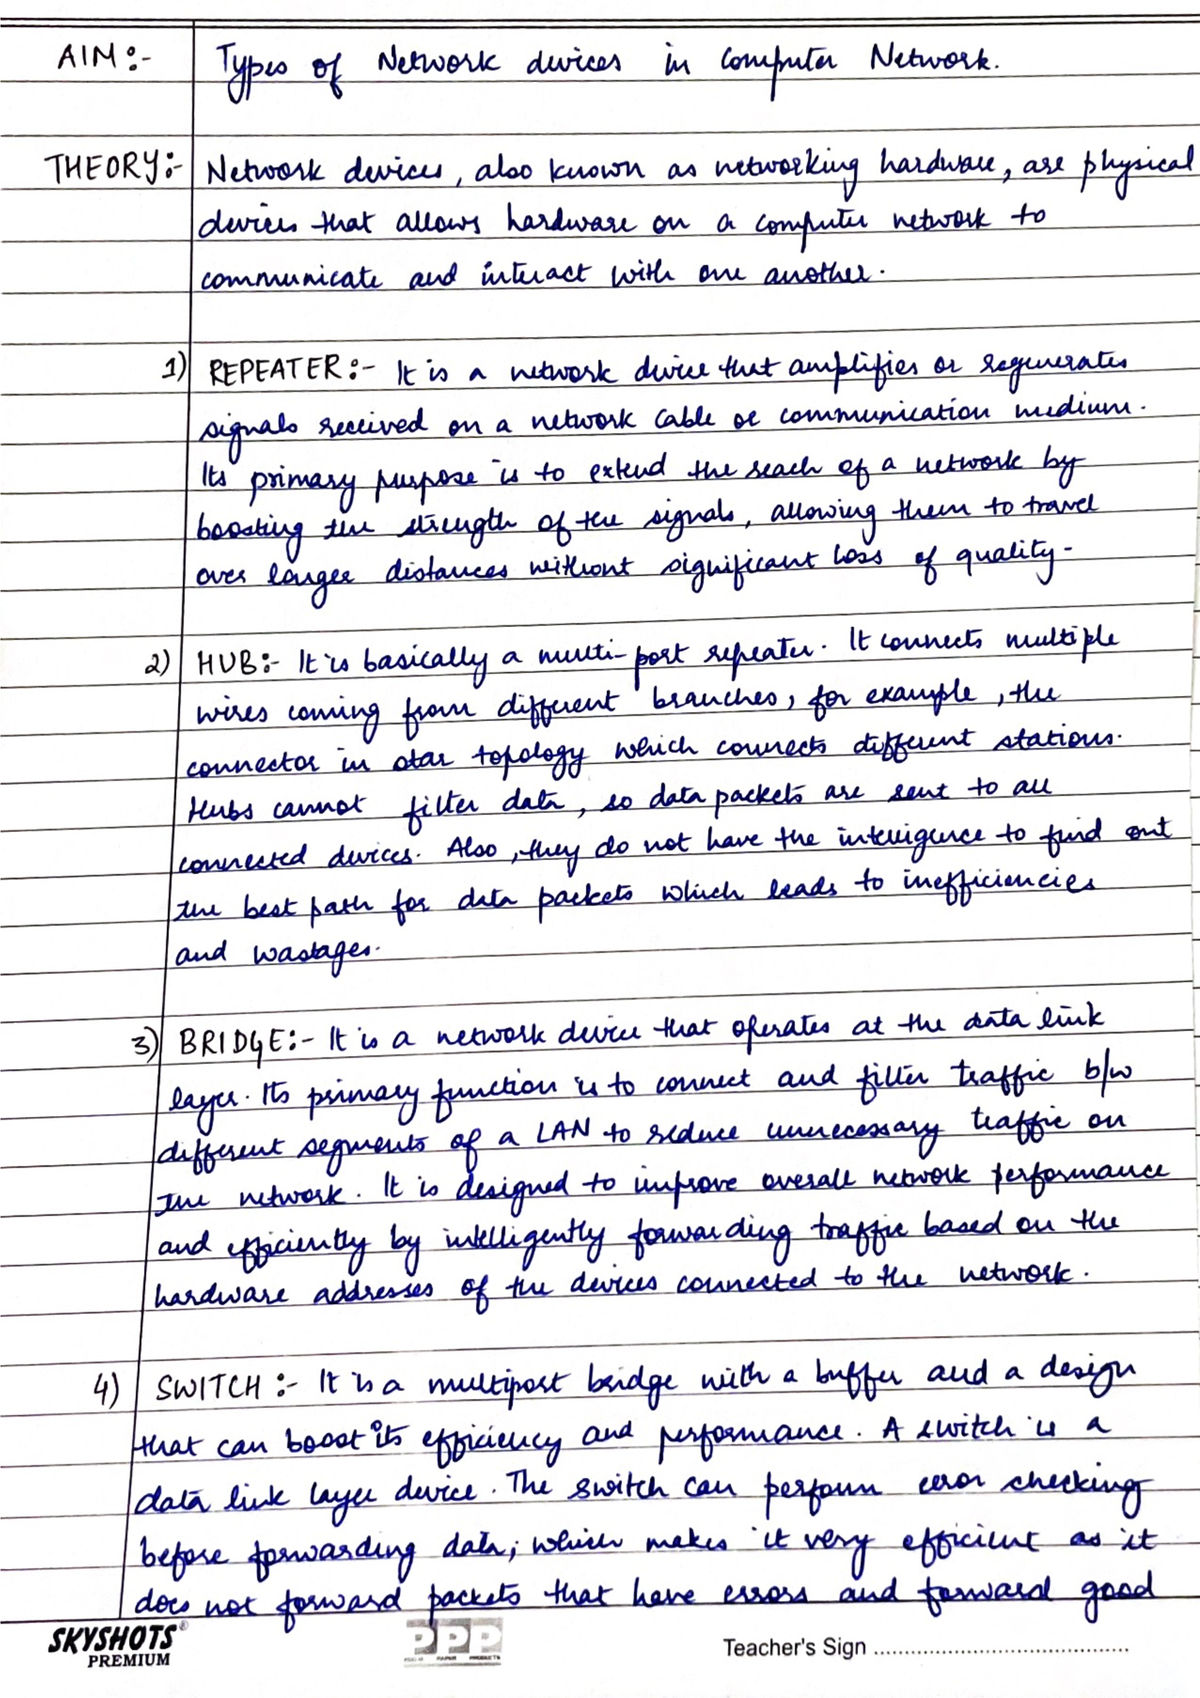 AIM:- Types of Network devices in Computer Network.
THEORY:- Network devices, also known as networking hardware, are physical
devices that allows hardware on a computer network to
communicate and interact with one another.
1) REPEATER:- It is a network device that amplifies or regenerates
signals received on a network cable or communication medium.
Its primary purpose is to extend the reach of a network by
boosting the strength of the signals, allowing them to travel
over longer distances without significant loss of quality-
2) HUB:- It is basically a multi-port repeater. It connects multiple
wires coming from different branches, for example, the
connector in star topology which connects different stations.
Hubs cannot filter data, so data packets are sent to all
connected devices. Also, they do not have the intelligence to find out
the best path for data packets which leads to inefficiencies
and wastages.
3) BRIDGE:- It is a network device that operates at the data link
layer. Its primary function is to connect and filter traffic b/w
different segments of a LAN to reduce unnecessary traffic on
the network. It is designed to improve overall network performance
and efficiently by intelligently forwarding traffic based on the
hardware addresses of the devices connected to the network.
4) SWITCH:- It is a multiport bridge with a buffer and a design
that can boost its efficiency and performance. A switch is a
data link layer device. The switch can perform error checking
before forwarding data, which makes it very efficient as it
does not forward packets that have errors and forward good
SKYSHOTS®
PREMIUM
PPP
PAPER PRODUCTS
Teacher's Sign ......................................